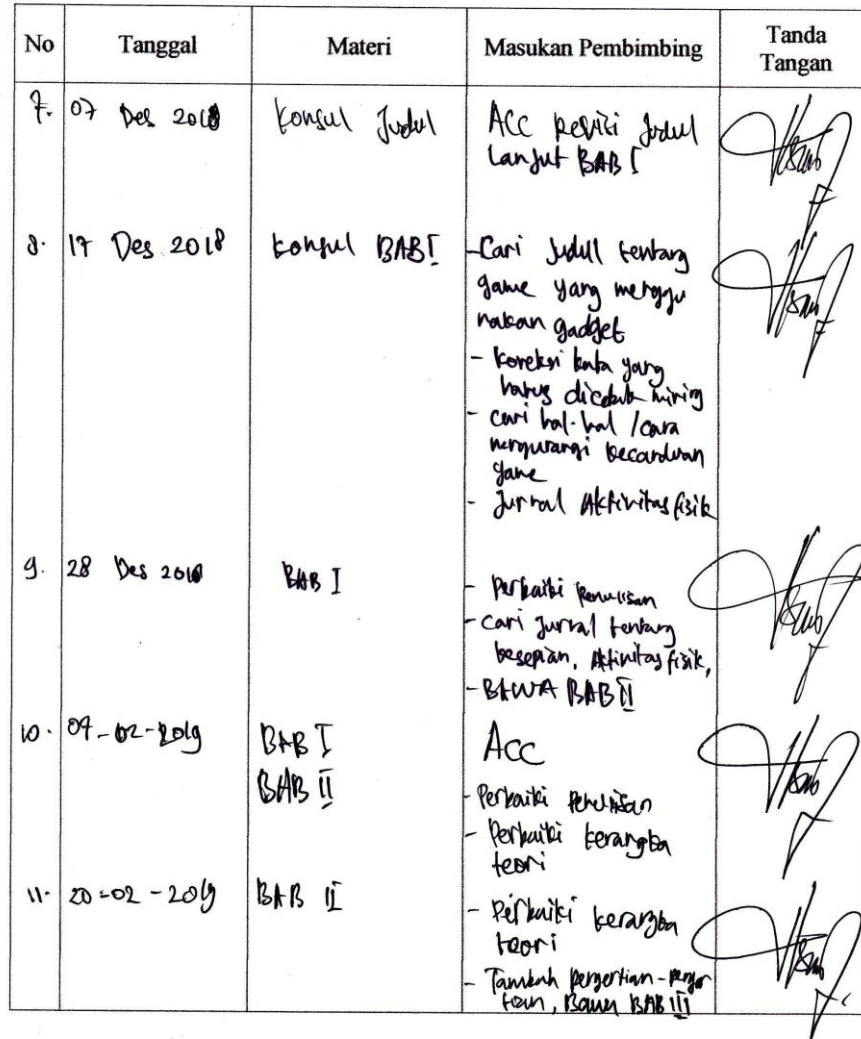 No Tanggal Materi Masukan Pembimbing Tanda Tangan
7. 07 Des 2018 Konsul Judul ACC Revisi Judul
Lanjut BAB I
8. 17 Des 2018 Konsul BAB I - Cari Judul tentang
game yang menggu
nakan gadget
- Koreksi kata yang
harus dicetak miring
- cari hal-hal / cara
mengurangi kecanduan
game
- Jurnal Aktivitas fisik
9. 28 Des 2018 BAB I - Perbaiki penulisan
- Cari Jurnal tentang
kesepian, Aktivitas fisik,
- BAWA BAB II
10. 07-02-2019 BAB I ACC
BAB II - Perbaiki Penulisan
- Perbaiki kerangka
teori
11. 20-02-2019 BAB II - Perbaiki kerangka
teori
- Tambah pengertian-penger
tian, Bawa BAB III